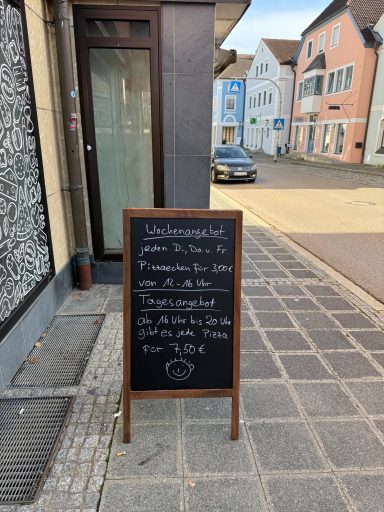 Wochenangebot
jeden Di, Do. u. Fr.
Pizzaecken für 3,00€
von 12-16 Uhr
Tagesangebot
ab 16 Uhr bis 20 Uhr
gibt es jede Pizza
für 7,50 €